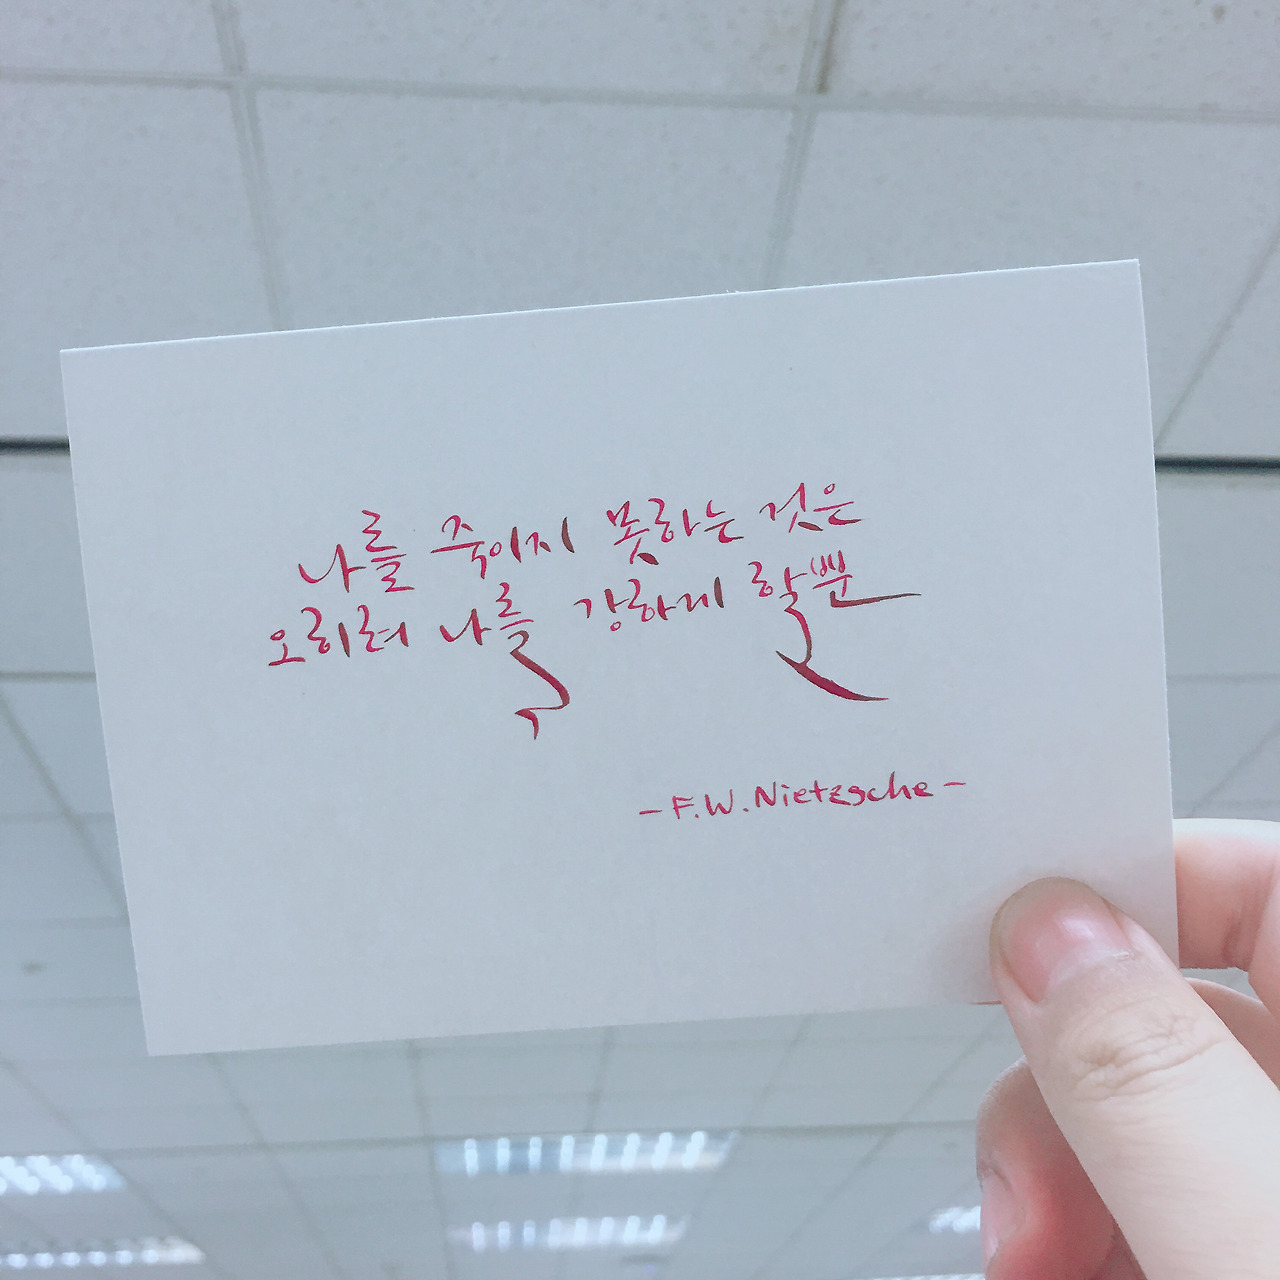 나를 죽이지 못하는 것은
오히려 나를 강하게 할뿐
- F.W.Nietzsche -